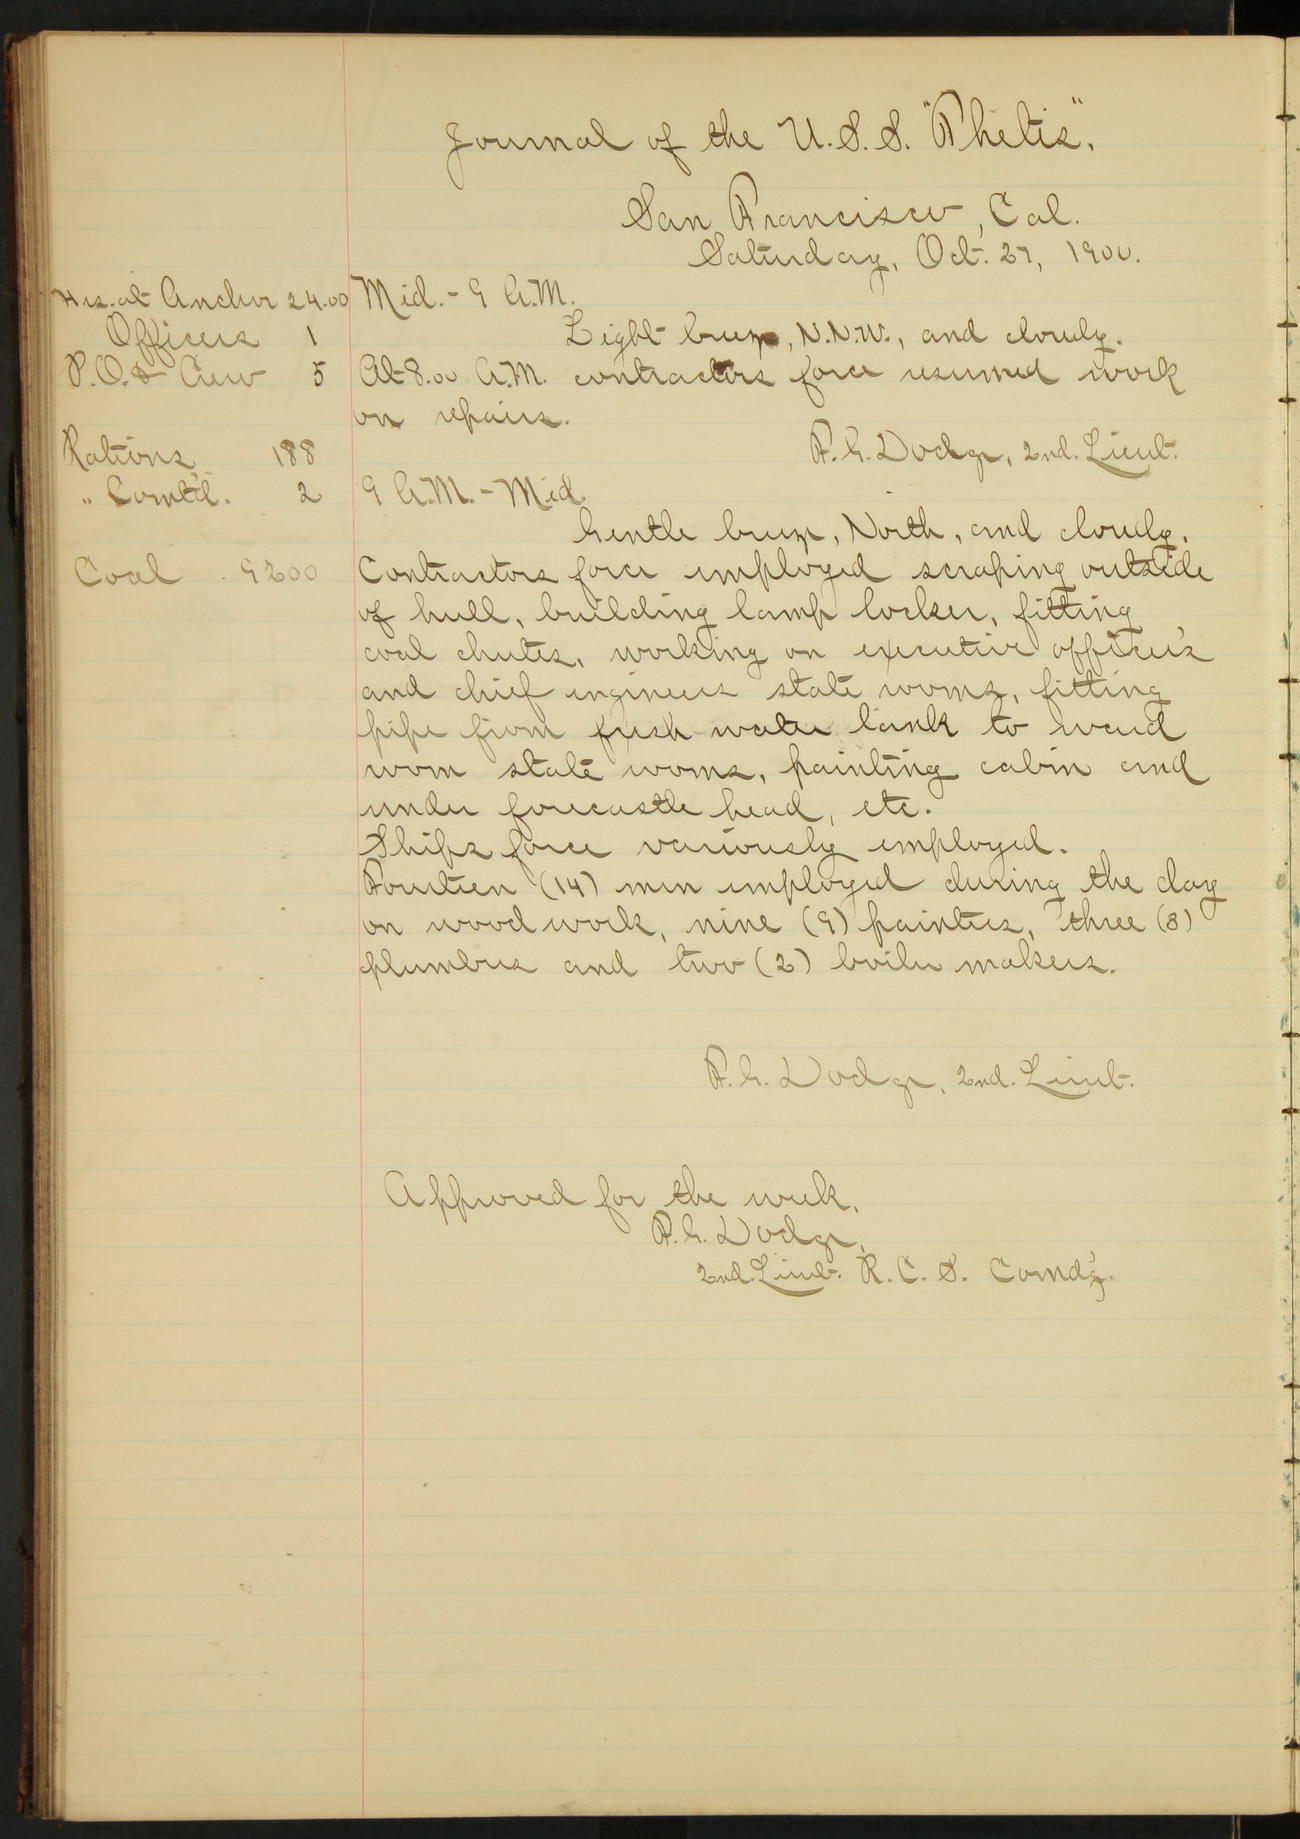 Journal of the U.S.S. "Thetis".
San Francisco, Cal.
Saturday, Oct. 27, 1900.
Hrs. at Anchor 24.00
Officers 1
P.O. & Crew 5
Rations 188
" Comt'd. 2
Coal 9200
Mid. - 9 A.M.
Light breeze, N.N.W., and cloudy.
At 8.00 A.M. contractors force resumed work
on repairs.
F.G. Dodge, 2nd. Lieut.
9 A.M. - Mid.
Gentle breeze, North, and cloudy.
Contractors force employed scraping outside
of hull, building lamp locker, fitting
coal chutes, working on executive officer's
and chief engineers state rooms, fitting
pipe from fresh water tank to ward
room state rooms, painting cabin and
under forecastle head, etc.
Ships force variously employed.
Fourteen (14) men employed during the day
on wood work, nine (9) painters, three (3)
plumbers and two (2) boiler makers.
F.G. Dodge, 2nd. Lieut.
Approved for the week,
F.G. Dodge,
2nd. Lieut. R.C.S. Comd'g.